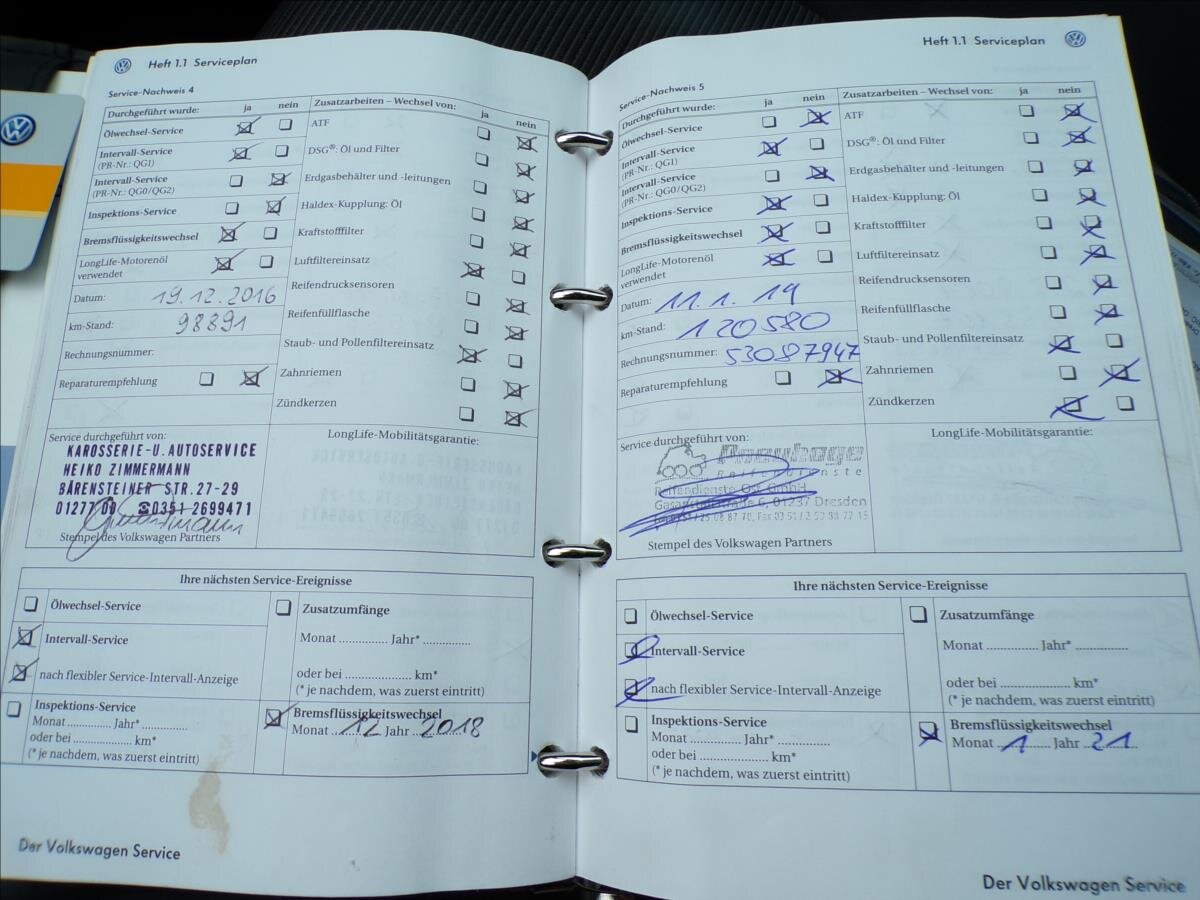 Heft 1.1 Serviceplan
Service-Nachweis 4
Durchgeführt wurde: ja nein
Ölwechsel-Service
Intervall-Service
(PR-Nr.: QG1)
Intervall-Service
(PR-Nr.: QG0/QG2)
Inspektions-Service
Bremsflüssigkeitswechsel
LongLife-Motorenöl
verwendet
Datum: 19.12.2016
km-Stand: 98891
Rechnungsnummer:
Reparaturempfehlung
Zusatzarbeiten – Wechsel von: ja nein
ATF
DSG®: Öl und Filter
Erdgasbehälter und -leitungen
Haldex-Kupplung: Öl
Kraftstofffilter
Luftfiltereinsatz
Reifendrucksensoren
Reifenfüllflasche
Staub- und Pollenfiltereinsatz
Zahnriemen
Zündkerzen
Service durchgeführt von:
KAROSSERIE-U. AUTOSERVICE
HEIKO ZIMMERMANN
BÄRENSTEINER STR. 27-29
01277 DD ☎0351 2699471
Stempel des Volkswagen Partners
LongLife-Mobilitätsgarantie:
Ihre nächsten Service-Ereignisse
Ölwechsel-Service
Intervall-Service
nach flexibler Service-Intervall-Anzeige
Inspektions-Service
Monat .............. Jahr* ...............
oder bei .................... km*
(* je nachdem, was zuerst eintritt)
Zusatzumfänge
Monat .............. Jahr* ..............
oder bei .................... km*
(* je nachdem, was zuerst eintritt)
Bremsflüssigkeitswechsel
Monat 12 Jahr 2018
Der Volkswagen Service
Heft 1.1 Serviceplan
Service-Nachweis 5
Durchgeführt wurde: ja nein
Ölwechsel-Service
Intervall-Service
(PR-Nr.: QG1)
Intervall-Service
(PR-Nr.: QG0/QG2)
Inspektions-Service
Bremsflüssigkeitswechsel
LongLife-Motorenöl
verwendet
Datum: 11.1.19
km-Stand: 120580
Rechnungsnummer: 53087947
Reparaturempfehlung
Zusatzarbeiten – Wechsel von: ja nein
ATF
DSG®: Öl und Filter
Erdgasbehälter und -leitungen
Haldex-Kupplung: Öl
Kraftstofffilter
Luftfiltereinsatz
Reifendrucksensoren
Reifenfüllflasche
Staub- und Pollenfiltereinsatz
Zahnriemen
Zündkerzen
Service durchgeführt von:
Reifendienste
Reifendienste Ost GmbH
6, 01237 Dresden
Stempel des Volkswagen Partners
LongLife-Mobilitätsgarantie:
Ihre nächsten Service-Ereignisse
Ölwechsel-Service
Intervall-Service
nach flexibler Service-Intervall-Anzeige
Inspektions-Service
Monat .............. Jahr* ...............
oder bei .................... km*
(* je nachdem, was zuerst eintritt)
Zusatzumfänge
Monat .............. Jahr* ...............
oder bei .................... km*
(* je nachdem, was zuerst eintritt)
Bremsflüssigkeitswechsel
Monat 1 Jahr 21
Der Volkswagen Service